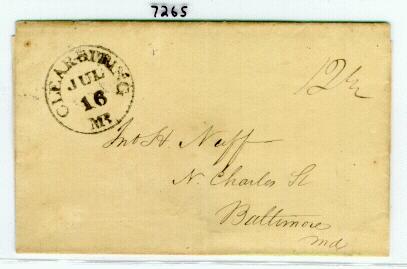 7265
CLEAR-SPRING
JUL
16
Md.
12½
Jno H. Naff
N. Charles St
Baltimore
Md